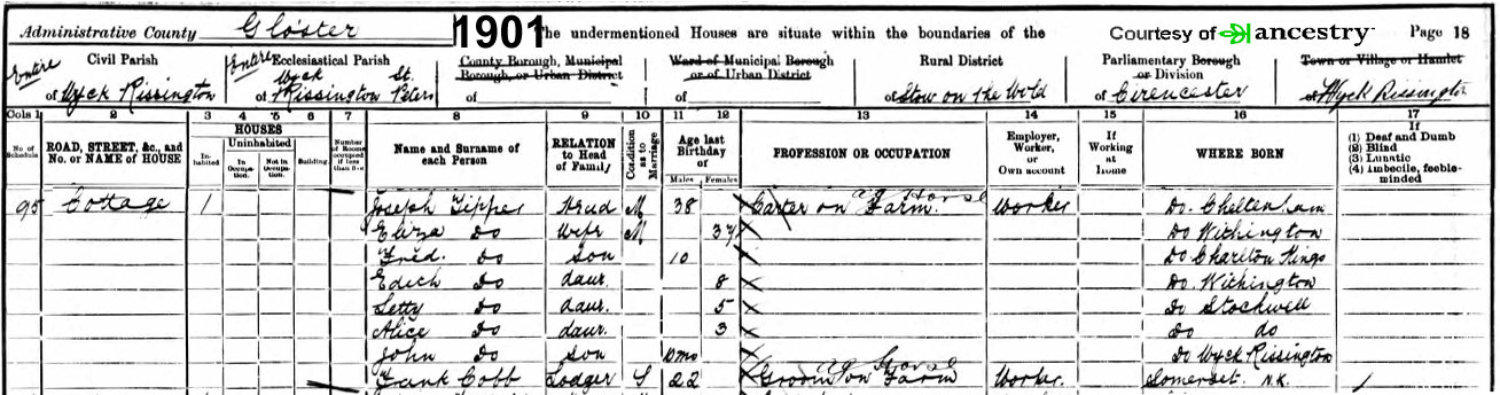 Administrative County Gloster 1901 The undermentioned Houses are situate within the boundaries of the Courtesy of ancestry Page 18
Civil Parish Ecclesiastical Parish County Borough, Municipal Borough, or Urban District Ward of Municipal Borough or of Urban District Rural District Parliamentary Borough or Division Town or Village or Hamlet
Entire of Wyck Rissington Entire of Wyck Rissington St. Peters of of of Stow on the Wold of Cirencester of Wyck Rissington
Cols 1 2 3 4 5 6 7 8 9 10 11 12 13 14 15 16 17
No of Schedule ROAD, STREET, &c., and No. or NAME of HOUSE HOUSES Inhabited Uninhabited In Occupation. Not in Occupation. Building. Number of Rooms occupied if less than five Name and Surname of each Person RELATION to Head of Family Condition as to Marriage Age last Birthday of Males Females PROFESSION OR OCCUPATION Employer, Worker, or Own account If Working at Home WHERE BORN If (1) Deaf and Dumb (2) Blind (3) Lunatic (4) Imbecile, feeble-minded
95 Cottage 1 Joseph Tipper Head M 38 Carter on Farm. ag Horse Worker Do. Cheltenham
Eliza Do Wife M 37 Do Withington
Fred. Do son 10 Do Charlton Kings
Edith Do daur. 8 Do. Withington
Letty Do daur. 5 Do Stockwell
Alice Do daur. 3 Do do
John Do son 10 mo Do Wyck Rissington
Frank Cobb Lodger S 22 Groom on Farm ag Horse Worker. Somerset. N.K.